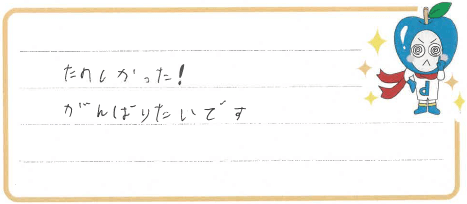 たのしかった!
がんばりたいです